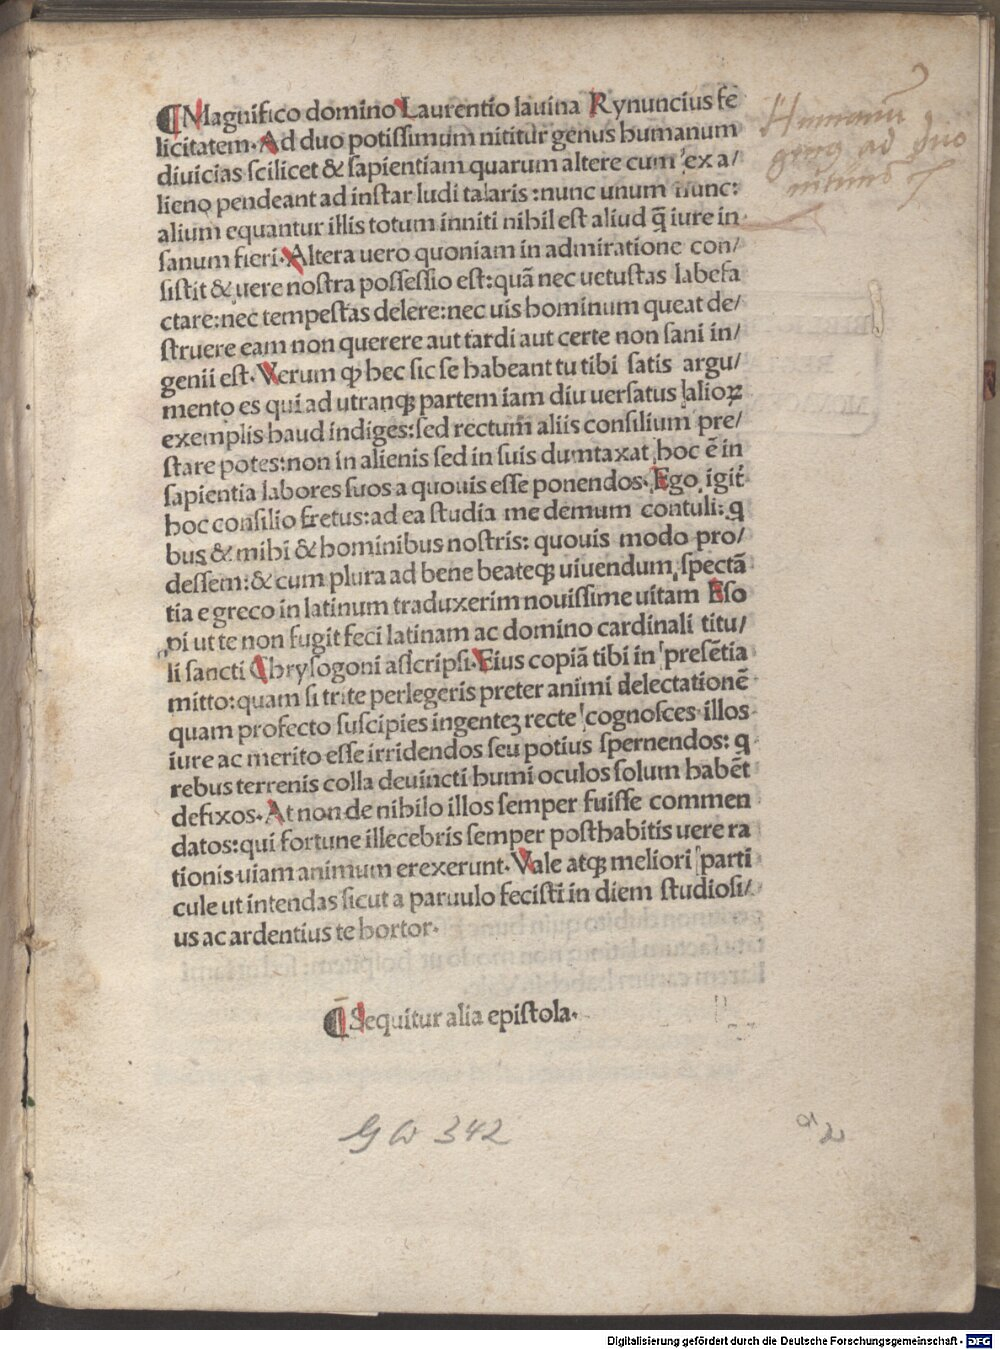 ¶ Magnifico domino Laurentio lauina Rynuncius fe
licitatem. Ad duo potissimum nititur genus humanum
diuicias scilicet & sapientiam quarum altere cum ex a/
lieno pendeant ad instar ludi talaris: nunc unum nunc:
alium equantur illis totum inniti nihil est aliud q̃ iure in
sanum fieri. Altera uero quoniam in admiratione con/
sistit & uere nostra possessio est: quã nec uetustas labefa
ctare: nec tempestas delere: nec uis hominum queat de/
struere eam non querere aut tardi aut certe non sani in/
genii est. Verum ꝙ hec sic se habeant tu tibi satis argu/
mento es qui ad utranqꝫ partem iam diu uersatus alioꝝ
exemplis haud indiges: sed rectum aliis consilium pre/
stare potes: non in alienis sed in suis dumtaxat hoc ẽ in
sapientia labores suos a quouis esse ponendos. Ego igit̃
hoc consilio fretus: ad ea studia me demum contuli: q
bus & mihi & hominibus nostris: quouis modo pro/
dessem: & cum plura ad bene beateqꝫ uiuendum spectã
tia e greco in latinum traduxerim nouissime uitam Eso
pi ut te non fugit feci latinam ac domino cardinali titu/
li sancti Chrysogoni ascripsi. Eius copiã tibi in presẽtia
mitto: quam si trite perlegeris preter animi delectationẽ
quam profecto suscipies ingenteꝫ recte cognosces illos
iure ac merito esse irridendos seu potius spernendos: q
rebus terrenis colla deuincti humi oculos solum habẽt
defixos. At non de nihilo illos semper fuisse commen
datos: qui fortune illecebris semper posthabitis uere ra
tionis uiam animum erexerunt. Vale atqꝫ meliori parti
cule ut intendas sicut a paruulo fecisti in diem studiosi/
us ac ardentius te hortor.
¶ Sequitur alia epistola.
Humanũ
genus ad duo
GW 342
a 2
Digitalisierung gefördert durch die Deutsche Forschungsgemeinschaft - DFG